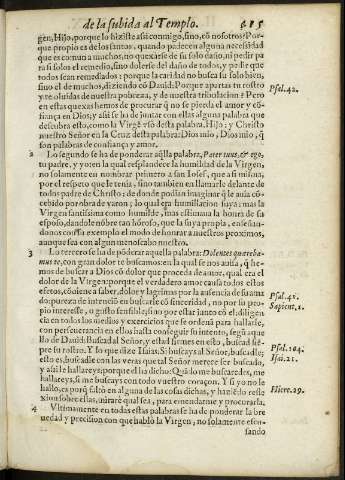 de la subida al Templo. 615
gen, Hijo, porque lo hiziste assi conmigo, sino, cō nosotros: Por-
que propio es de los santos, quando padecen alguna necessidad
que es comun a muchos, no quexarse de su solo daño, ni pedir pa
ra si solos el remedio, sino dolerse del daño de todos, y pedir que
todos sean remediados: porque la caridad no busca su solo bien,
sino el de muchos, diziendo cō Dauid: Porque apartas tu rostro
y te oluidas de nuestra pobreza, y de nuestra tribulacion? Pero
en estas quexas hemos de procurar q̄ no se pierda el amor y cō-
fiança en Dios, y assi se ha de juntar con ellas alguna palabra que
descubra esto, como la Virgē vsó desta palabra, Hijo; y Christo
nuestro Señor en la Cruz desta palabra: Dios mio, Dios mio, q̄
son palabras de confiança y amor.
Psal. 42.
2 Lo segundo se ha de ponderar aq̄lla palabra, Pater tuus, & ego,
tu padre, y yo: en la qual resplandece la humildad de la Virgen,
no solamente en nombrar primero a san Iosef, que a si misma,
por el respeto que le tenia, sino tambien en llamarle delante de
todos padre de Christo: de donde podian imaginar q̄ le auia cō-
cebido por obra de varon; lo qual era humillacion suya: mas la
Virgen santissima como humilde, mas estimaua la honra de su
esposo, dandole nōbre tan hōroso, que la suya propia, enseñan-
donos con su exemplo el modo de honrar a nuestros proximos,
aunque sea con algun menoscabo nuestro.
3 Lo tercero se ha de pōderar aquella palabra: Dolentes quærebamus
te, con gran dolor te buscamos: en la qual se nos auisa, q̄ he-
mos de buscar a Dios cō dolor que proceda de amor, qual era el
dolor de la Virgen: porque el verdadero amor causa todos estos
efetos, cōuiene a saber, dolor y lagrimas por la ausencia de su ama
do: pureza de intenciō en buscarle cō sinceridad, no por su pro-
pio interesse, o gusto sensible; sino por estar junto con el: diligen
cia en todos los medios y exercicios que se ordenā para hallarle,
con perseuerancia en ellos hasta conseguir su intento, segū aque
llo de Dauid: Buscad al Señor, y estad firmes en esto, buscad siē-
pre su rostro. Y lo que dize Isaias: Si buscays al Señor, buscadle,
esto es, buscadle con las veras que tal Señor merece ser buscado,
y assi le hallareys; porque el ha dicho: Quādo me buscaredes, me
hallareys, si me buscays con todo vuestro coraçon. Y si yo no le
hallo, es porq̄ faltō en alguna de las cosas dichas, y haziēdo refle
xion sobre estas, miraré qual sea, para emendarme y procurarla.
Psal. 41.
Sapient. 1.
Psal. 104.
Isai. 21.
Hiere. 29.
4 Vltimamente en todas estas palabras se ha de ponderar la bre
uedad y precision con que habló la Virgen, no solamente escu-
sando